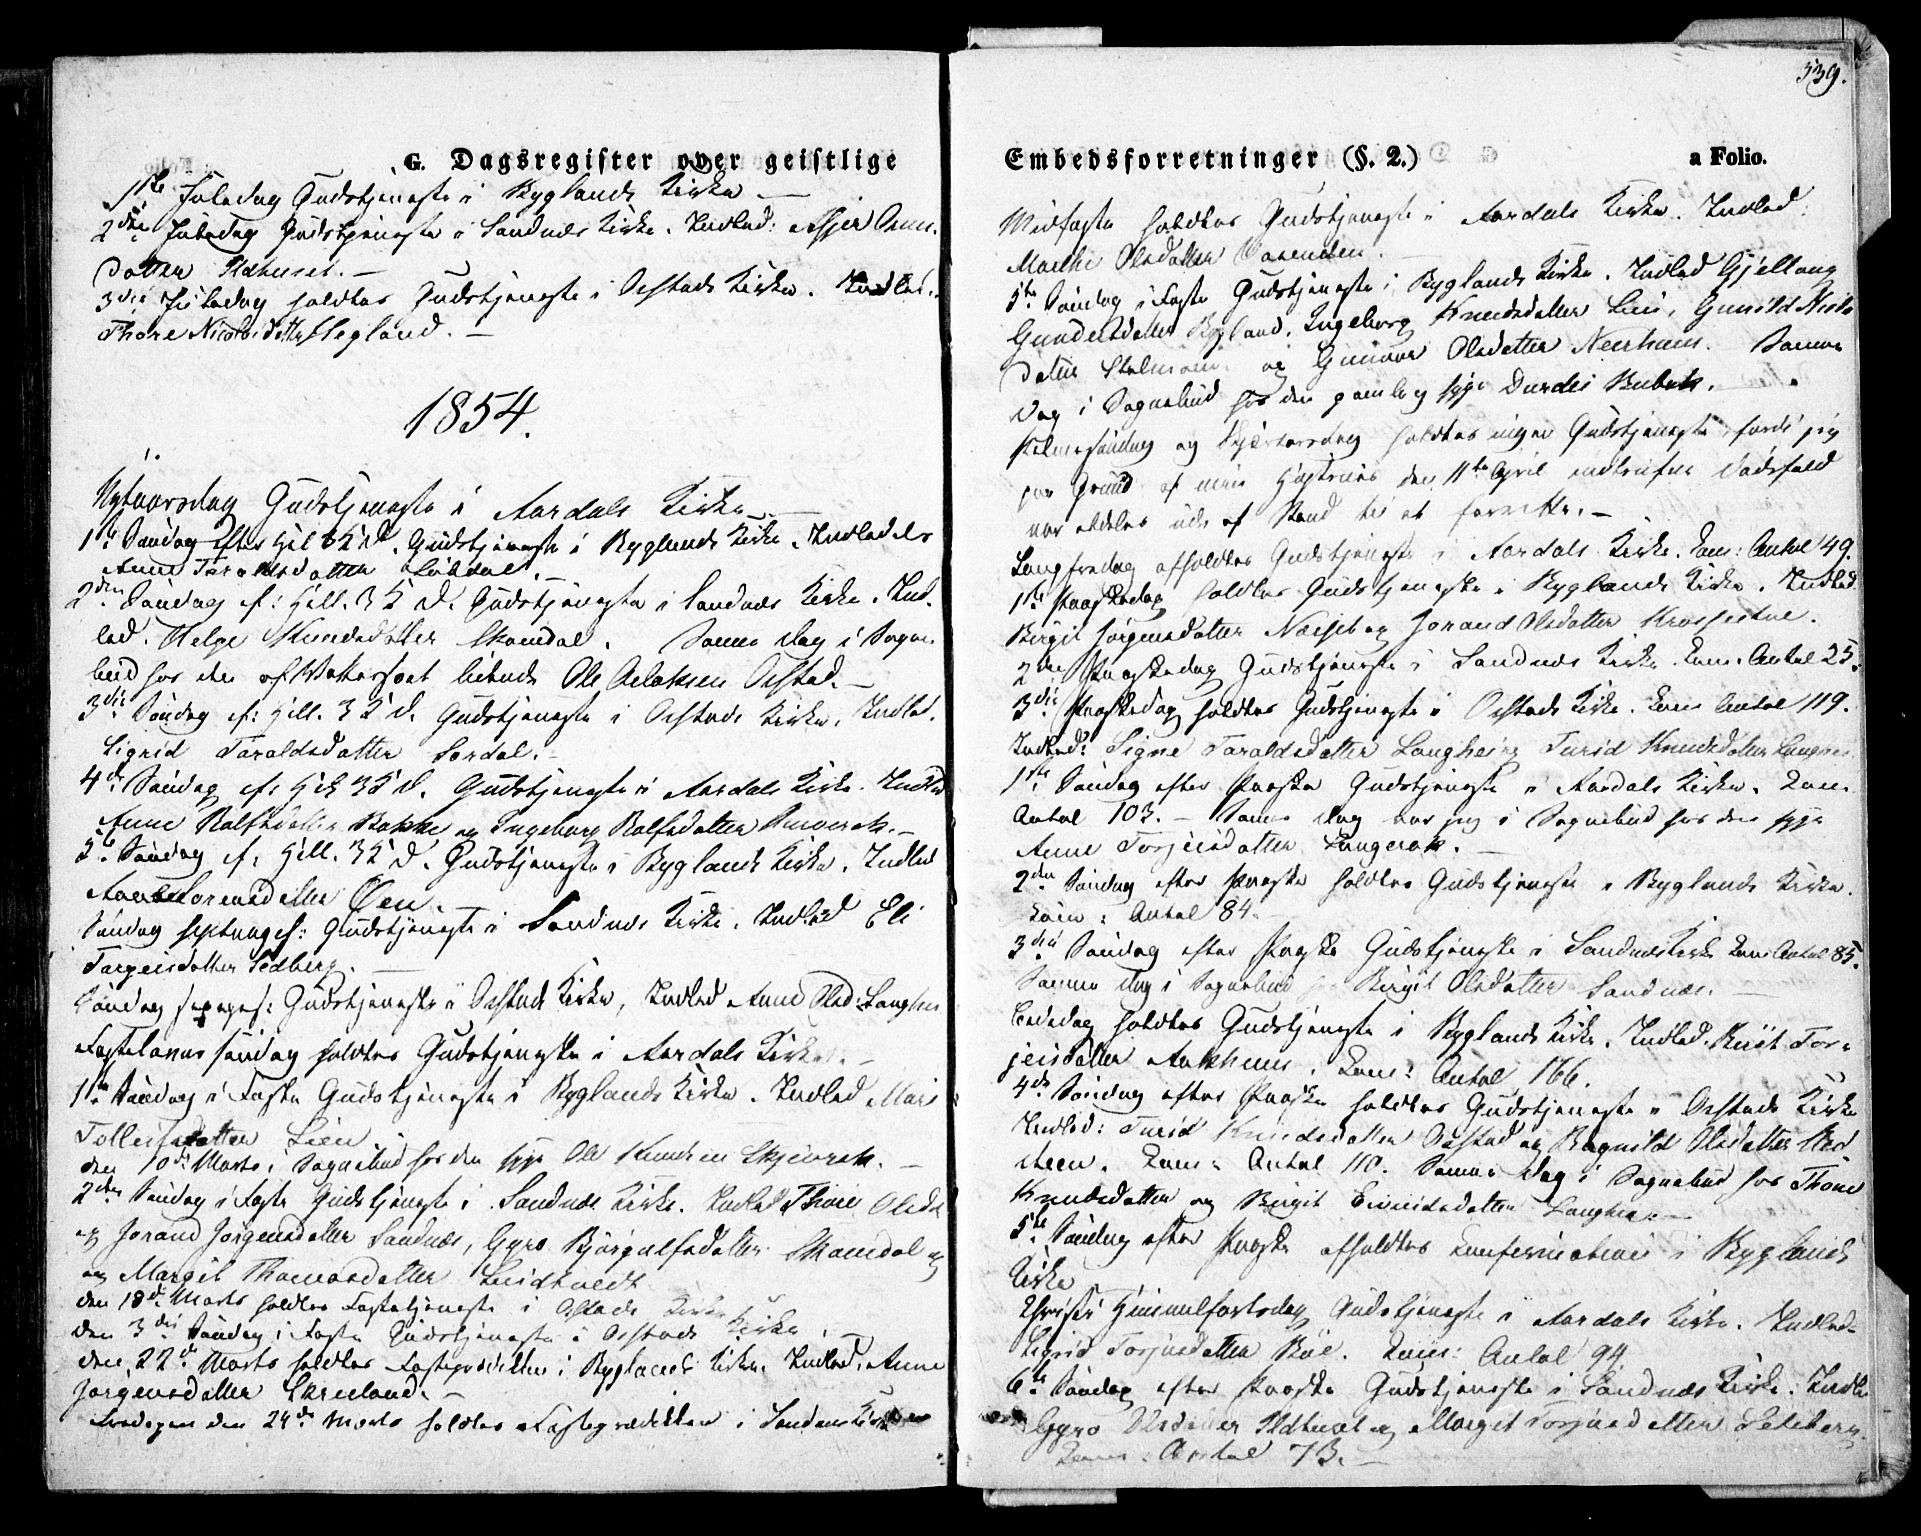 G. Dagsregister over geistlige
1ste Juledag Gudstjeneste i Byglands Kirke. —
2den Juledag Gudstjeneste i Sandnæs Kirke. Indled:
datter Ildhuset. —
3die Juledag holdtes Gudstjeneste i Østads Kirke. Indled:
Thore Nicolaidatter —
1854.
Nytaarsdag Gudstjeneste i Aardals Kirke. —
1ste Søndag efter Hel. 3 K. D. Gudstjeneste i Byglands Kirke. Indledes
Anne Taraldsdatter —
2den Søndag ef: Hell. 3 K. D. Gudstjeneste i Sandnæs Kirke. Ind-
led. Helge Knudsdatter Skomdal. Samme Dag i Sogne-
bud hos den af lidende Ole Aslaksen Østad. —
3die Søndag ef: Hell. 3 K. D. Gudstjeneste i Østads Kirke. Indled.
Sigrid Taraldsdatter Sordal. —
4de Søndag ef: Hel. 3 K. D. Gudstjeneste i Aardals Kirke. Indled
Anne Rolfsdatter Bakke og Ingeborg Rolfsdatter —
5te Søndag ef. Hell. 3 K. D. Gudstjeneste i Byglands Kirke. Indled
Øen. —
Søndag septuages: Gudstjeneste i Sandnæs Kirke. Indled Eli
Targeisdatter Sedberg. —
Søndag sexages: Gudstjeneste i Østads Kirke, Indled Anne Olsd: Langhei
Fastelavns søndag holdtes Gudstjeneste i Aardals Kirke. —
1ste Søndag i Faste Gudstjeneste i Byglands Kirke. Indled Mari
Tollefsdatter Lien
den 10de Marts i Sognebud hos den syge Ole Knudsen —
2den Søndag i Faste Gudstjeneste i Sandnæs Kirke. Indled Thone Olsd.
og Jorand Jørgensdatter Sandnæs, Gyro Bjørgulfsdatter Skomdal og
og Margit Thomasdatter
den 18de Marts holdtes Fastetjeneste i Østads Kirke
den 3die Søndag i Faste Gudstjeneste i Østads Kirke
den 22de Marts holdtes Fasteprædiken i Byglands Kirke. Indled. Anne
Jørgensdatter —
Fredagen den 24de Marts holdtes Fasteprædiken i Sandnæs Kirke
539.
Embedsforretninger (§. 2.) a Folio.
Midfaste holdtes Gudstjeneste i Aardals Kirke. Indled:
Olsdatter —
5te Søndag i Faste Gudstjeneste i Byglands Kirke. Indled Gjellaug
Gundersdatter Bygland, Ingeborg Knudsdatter Lien, Gunild Niels
datter og Gunvor Olsdatter Neerheim. Samme
Dag i Sognebud hos den gamle og syge —
Palmesøndag og Skjærtorsdag holdtes ingen Gudstjeneste, fordi jeg
paa Grund af min Hustrues den 11te April indtrufne Dødsfald
var aldeles ude af Stand til at forrette. —
Langfredag afholdtes Gudstjeneste i Aardals Kirke. Com: Antal 49.
1ste Paaskedag holdtes Gudstjeneste i Byglands Kirke. Indled
Birgit Jørgensdatter og Jorand Olsdatter
2den Paaskedag Gudstjeneste i Sandnæs Kirke. Com: Antal 25.
3die Paaskedag holdtes Gudstjeneste i Østads Kirke. Com: Antal 119.
Indled: Signe Taraldsdatter Langhei og Turid Knudsdatter
1ste Søndag efter Paaske Gudstjeneste i Aardals Kirke. Com:
Antal 103. — Samme Dag var jeg i Sognebud hos den syge
Anne Torjeisdatter Langerak. —
2den Søndag efter Paaske holdtes Gudstjeneste i Byglands Kirke.
Com: Antal 84. —
3die Søndag efter Paaske Gudstjeneste i Sandnæs Kirke Com: Antal 85.
Samme Dag i Sognebud hos Birgit Olsdatter Sandnæs. —
Bededag holdtes Gudstjeneste i Byglands Kirke. Indled. Tor-
jeisdatter. Com: Antal 166.
4de Søndag efter Paaske holdtes Gudstjeneste i Østads Kirke
Indled: Turid Knudsdatter Østad og Ragnild Olsdatter
Com: Antal 110. Samme Dag i Sognebud hos Thone
Knudsdatter og Birgit Langhei —
5te Søndag efter Paaske afholdtes Confirmation i Byglands
Kirke
Christi Himmelfartsdag Gudstjeneste i Aardals Kirke. Indled-
Sigrid Torjusdatter Bøe. Com: Antal 94.
6te Søndag efter Paaske Gudstjeneste i Sandnæs Kirke. Indled
Gyro Olsdatter Ildhuset og Margit Torjusdatter
Com: Antal 73. —